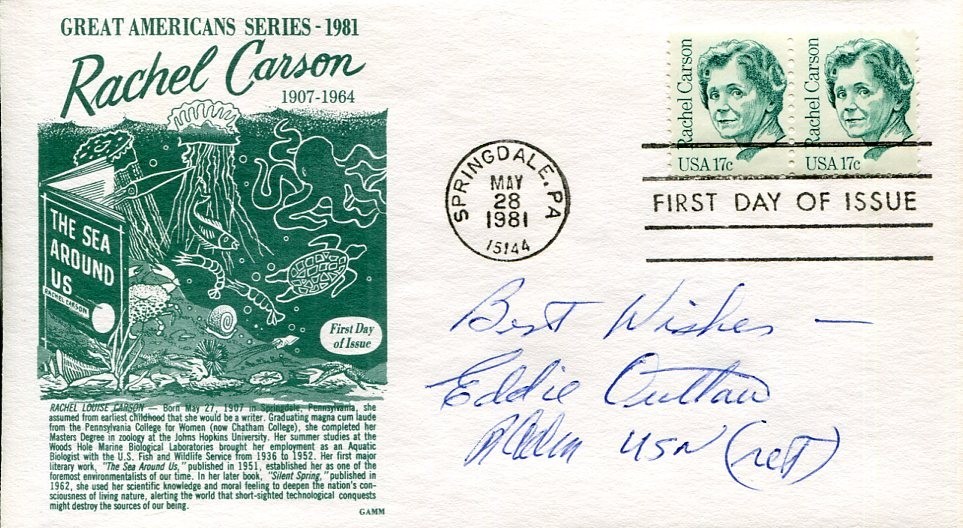 GREAT AMERICANS SERIES - 1981
Rachel Carson
1907-1964
THE SEA
AROUND
US
RACHEL CARSON
First Day
of Issue
RACHEL LOUISE CARSON — Born May 27, 1907 in Springdale, Pennsylvania, she
assumed from earliest childhood that she would be a writer. Graduating magna cum laude
from the Pennsylvania College for Women (now Chatham College), she completed her
Masters Degree in zoology at the Johns Hopkins University. Her summer studies at the
Woods Hole Marine Biological Laboratories brought her employment as an Aquatic
Biologist with the U.S. Fish and Wildlife Service from 1936 to 1952. Her first major
literary work, "The Sea Around Us," published in 1951, established her as one of the
foremost environmentalists of our time. In her later book, "Silent Spring," published in
1962, she used her scientific knowledge and moral feeling to deepen the nation's con-
sciousness of living nature, alerting the world that short-sighted technological conquests
might destroy the sources of our being.
GAMM
Rachel Carson
USA 17c
Rachel Carson
USA 17c
SPRINGDALE, PA
MAY
28
1981
15144
FIRST DAY OF ISSUE
Best Wishes —
Eddie Outlaw
RAdm USN (ret)